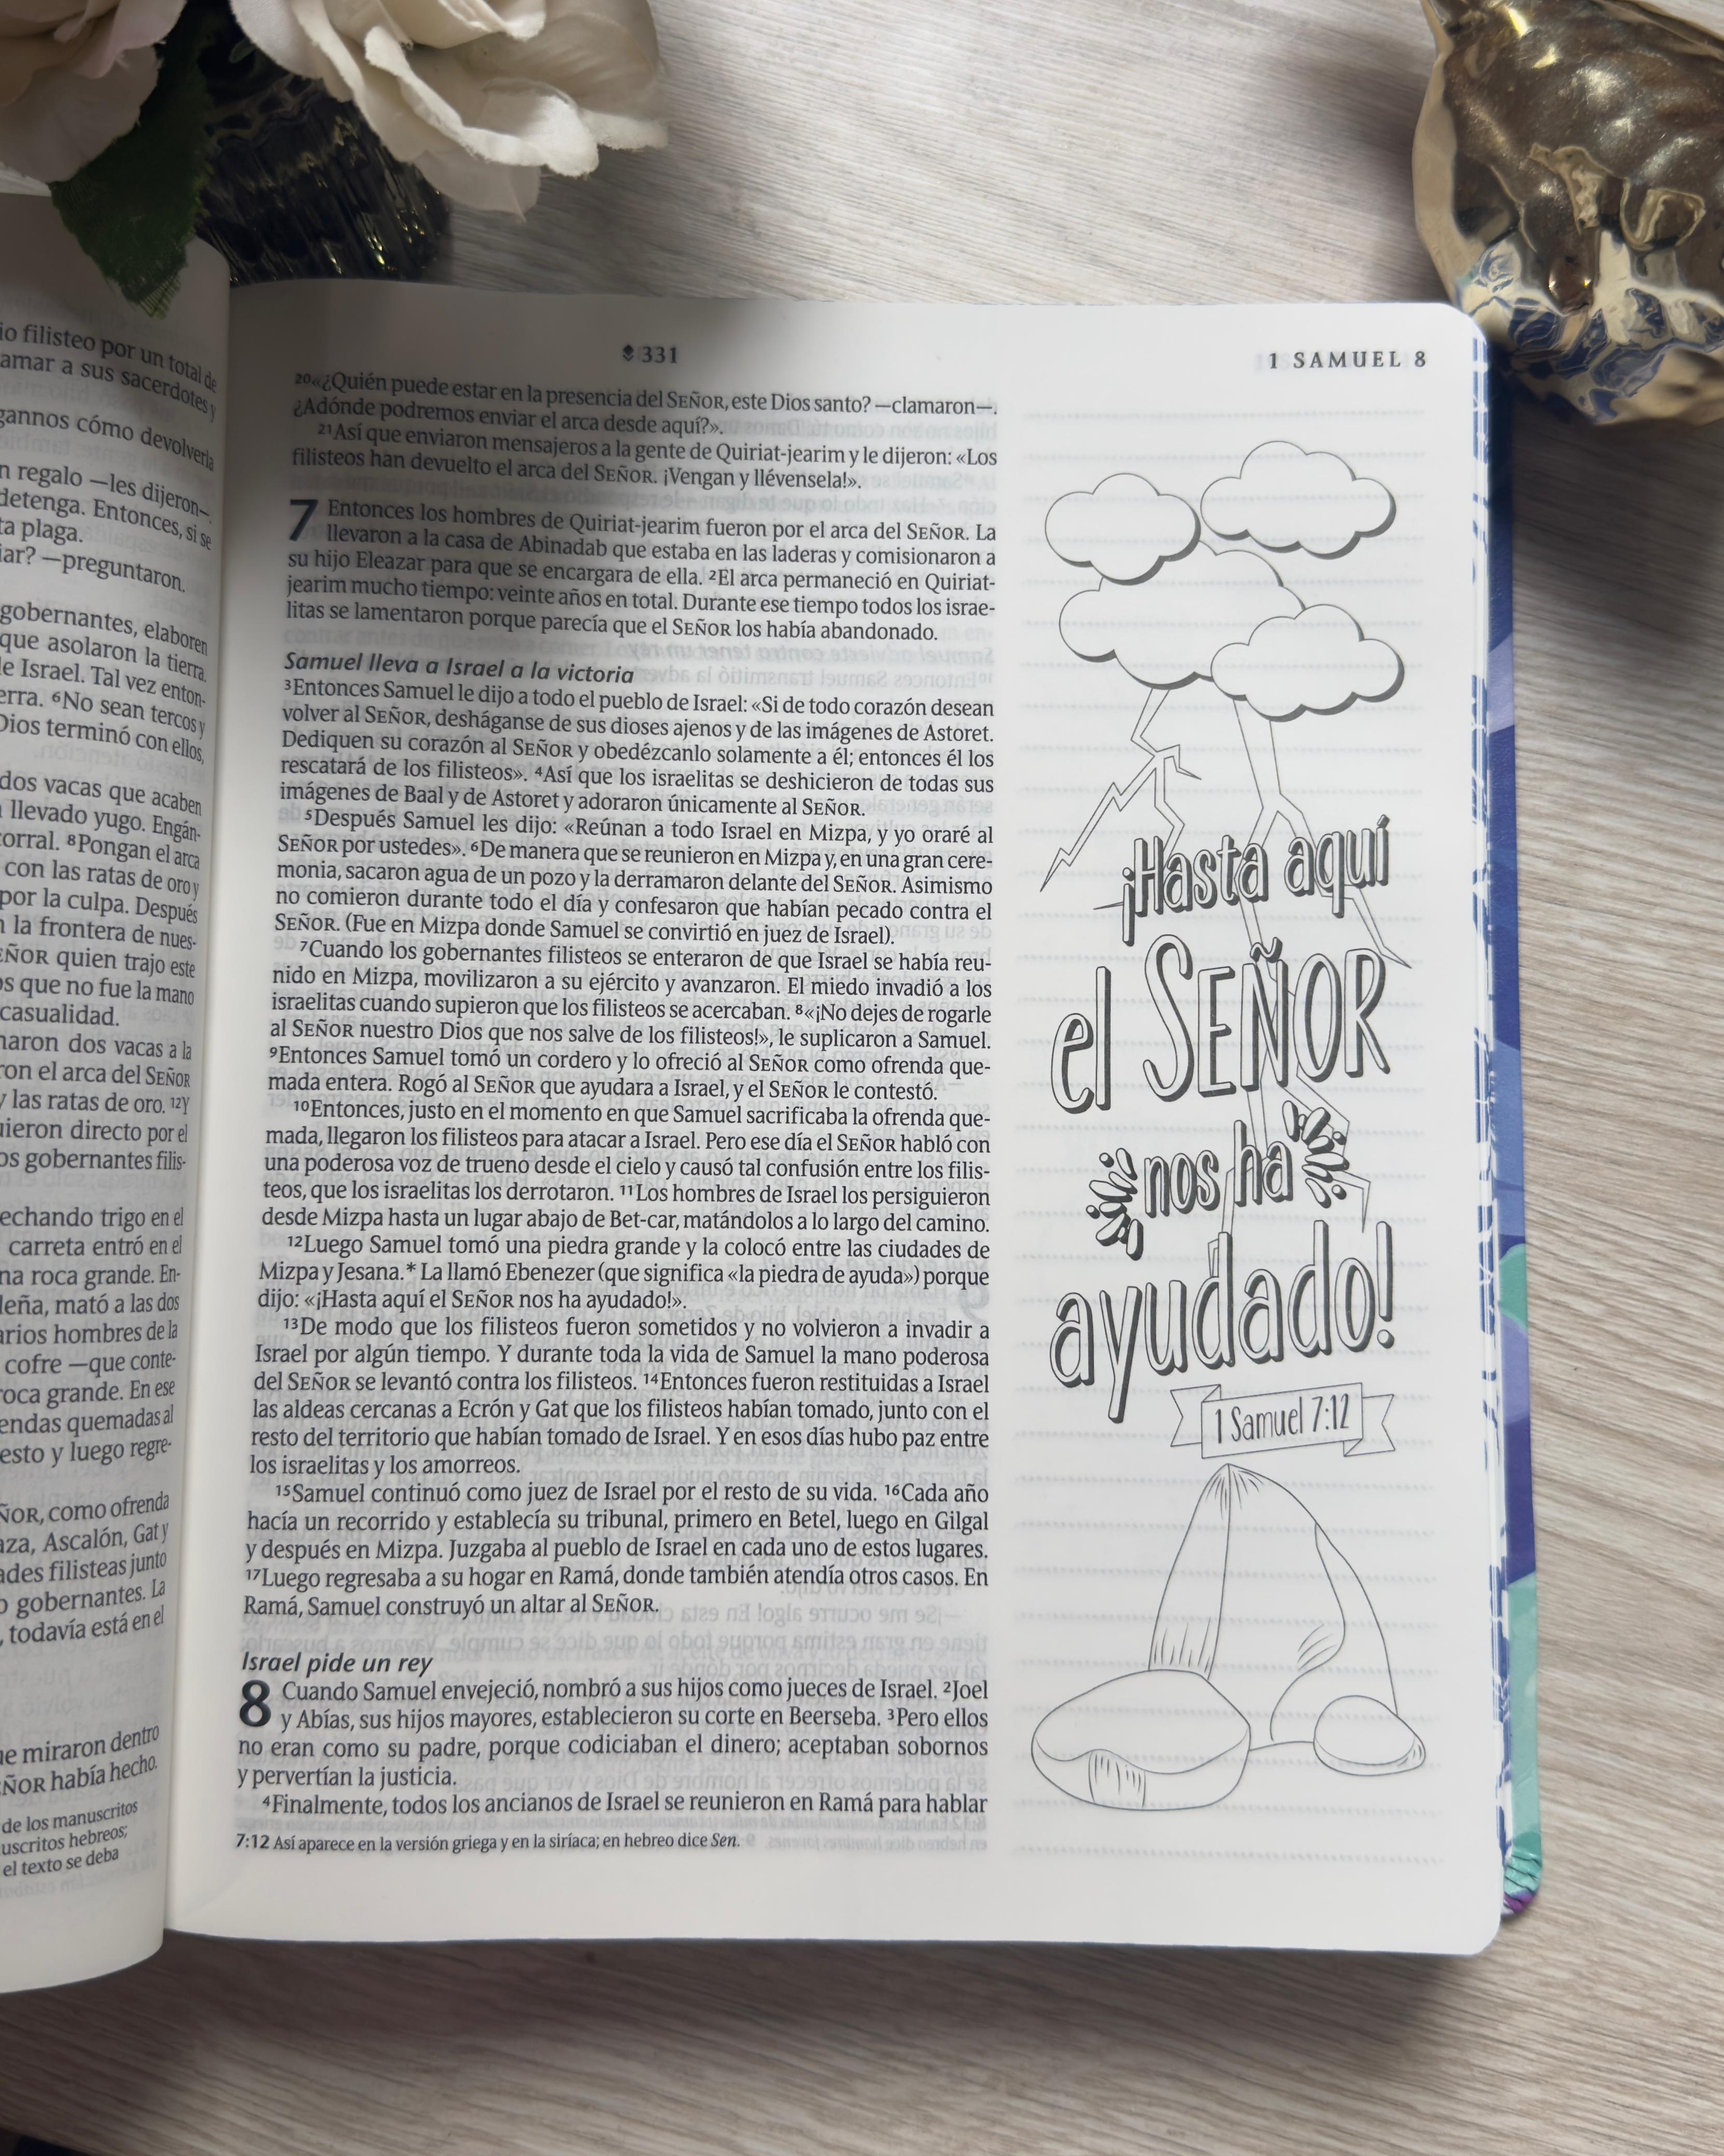 io filisteo por un total de
amar a sus sacerdotes y
gannos cómo devolverla
n regalo —les dijeron—.
detenga. Entonces, si se
ta plaga.
iar? —preguntaron.
gobernantes, elaboren
que asolaron la tierra.
le Israel. Tal vez enton-
erra. ⁶No sean tercos y
Dios terminó con ellos,
dos vacas que acaben
llevado yugo. Engán-
corral. ⁸Pongan el arca
con las ratas de oro y
por la culpa. Después
n la frontera de nues-
EÑOR quien trajo este
os que no fue la mano
casualidad.
naron dos vacas a la
ron el arca del SEÑOR
y las ratas de oro. ¹²Y
uieron directo por el
os gobernantes filis-
echando trigo en el
carreta entró en el
na roca grande. En-
leña, mató a las dos
arios hombres de la
cofre —que conte-
roca grande. En ese
endas quemadas al
esto y luego regre-
ÑOR, como ofrenda
aza, Ascalón, Gat y
ades filisteas junto
o gobernantes. La
, todavía está en el
ue miraron dentro
EÑOR había hecho.
de los manuscritos
uscritos hebreos;
el texto se deba
331
1 SAMUEL 8
²⁰«¿Quién puede estar en la presencia del SEÑOR, este Dios santo? —clamaron—.
¿Adónde podremos enviar el arca desde aquí?».
²¹Así que enviaron mensajeros a la gente de Quiriat-jearim y le dijeron: «Los
filisteos han devuelto el arca del SEÑOR. ¡Vengan y llévensela!».
7 Entonces los hombres de Quiriat-jearim fueron por el arca del SEÑOR. La
llevaron a la casa de Abinadab que estaba en las laderas y comisionaron a
su hijo Eleazar para que se encargara de ella. ²El arca permaneció en Quiriat-
jearim mucho tiempo: veinte años en total. Durante ese tiempo todos los israe-
litas se lamentaron porque parecía que el SEÑOR los había abandonado.
Samuel lleva a Israel a la victoria
³Entonces Samuel le dijo a todo el pueblo de Israel: «Si de todo corazón desean
volver al SEÑOR, desháganse de sus dioses ajenos y de las imágenes de Astoret.
Dediquen su corazón al SEÑOR y obedézcanlo solamente a él; entonces él los
rescatará de los filisteos». ⁴Así que los israelitas se deshicieron de todas sus
imágenes de Baal y de Astoret y adoraron únicamente al SEÑOR.
⁵Después Samuel les dijo: «Reúnan a todo Israel en Mizpa, y yo oraré al
SEÑOR por ustedes». ⁶De manera que se reunieron en Mizpa y, en una gran cere-
monia, sacaron agua de un pozo y la derramaron delante del SEÑOR. Asimismo
no comieron durante todo el día y confesaron que habían pecado contra el
SEÑOR. (Fue en Mizpa donde Samuel se convirtió en juez de Israel).
⁷Cuando los gobernantes filisteos se enteraron de que Israel se había reu-
nido en Mizpa, movilizaron a su ejército y avanzaron. El miedo invadió a los
israelitas cuando supieron que los filisteos se acercaban. ⁸«¡No dejes de rogarle
al SEÑOR nuestro Dios que nos salve de los filisteos!», le suplicaron a Samuel.
⁹Entonces Samuel tomó un cordero y lo ofreció al SEÑOR como ofrenda que-
mada entera. Rogó al SEÑOR que ayudara a Israel, y el SEÑOR le contestó.
¹⁰Entonces, justo en el momento en que Samuel sacrificaba la ofrenda que-
mada, llegaron los filisteos para atacar a Israel. Pero ese día el SEÑOR habló con
una poderosa voz de trueno desde el cielo y causó tal confusión entre los filis-
teos, que los israelitas los derrotaron. ¹¹Los hombres de Israel los persiguieron
desde Mizpa hasta un lugar abajo de Bet-car, matándolos a lo largo del camino.
¹²Luego Samuel tomó una piedra grande y la colocó entre las ciudades de
Mizpa y Jesana.* La llamó Ebenezer (que significa «la piedra de ayuda») porque
dijo: «¡Hasta aquí el SEÑOR nos ha ayudado!».
¹³De modo que los filisteos fueron sometidos y no volvieron a invadir a
Israel por algún tiempo. Y durante toda la vida de Samuel la mano poderosa
del SEÑOR se levantó contra los filisteos. ¹⁴Entonces fueron restituidas a Israel
las aldeas cercanas a Ecrón y Gat que los filisteos habían tomado, junto con el
resto del territorio que habían tomado de Israel. Y en esos días hubo paz entre
los israelitas y los amorreos.
¹⁵Samuel continuó como juez de Israel por el resto de su vida. ¹⁶Cada año
hacía un recorrido y establecía su tribunal, primero en Betel, luego en Gilgal
y después en Mizpa. Juzgaba al pueblo de Israel en cada uno de estos lugares.
¹⁷Luego regresaba a su hogar en Ramá, donde también atendía otros casos. En
Ramá, Samuel construyó un altar al SEÑOR.
Israel pide un rey
8 Cuando Samuel envejeció, nombró a sus hijos como jueces de Israel. ²Joel
y Abías, sus hijos mayores, establecieron su corte en Beerseba. ³Pero ellos
no eran como su padre, porque codiciaban el dinero; aceptaban sobornos
y pervertían la justicia.
⁴Finalmente, todos los ancianos de Israel se reunieron en Ramá para hablar
7:12 Así aparece en la versión griega y en la siríaca; en hebreo dice Sen.
¡Hasta aquí
el SEÑOR
nos ha
ayudado!
1 Samuel 7:12